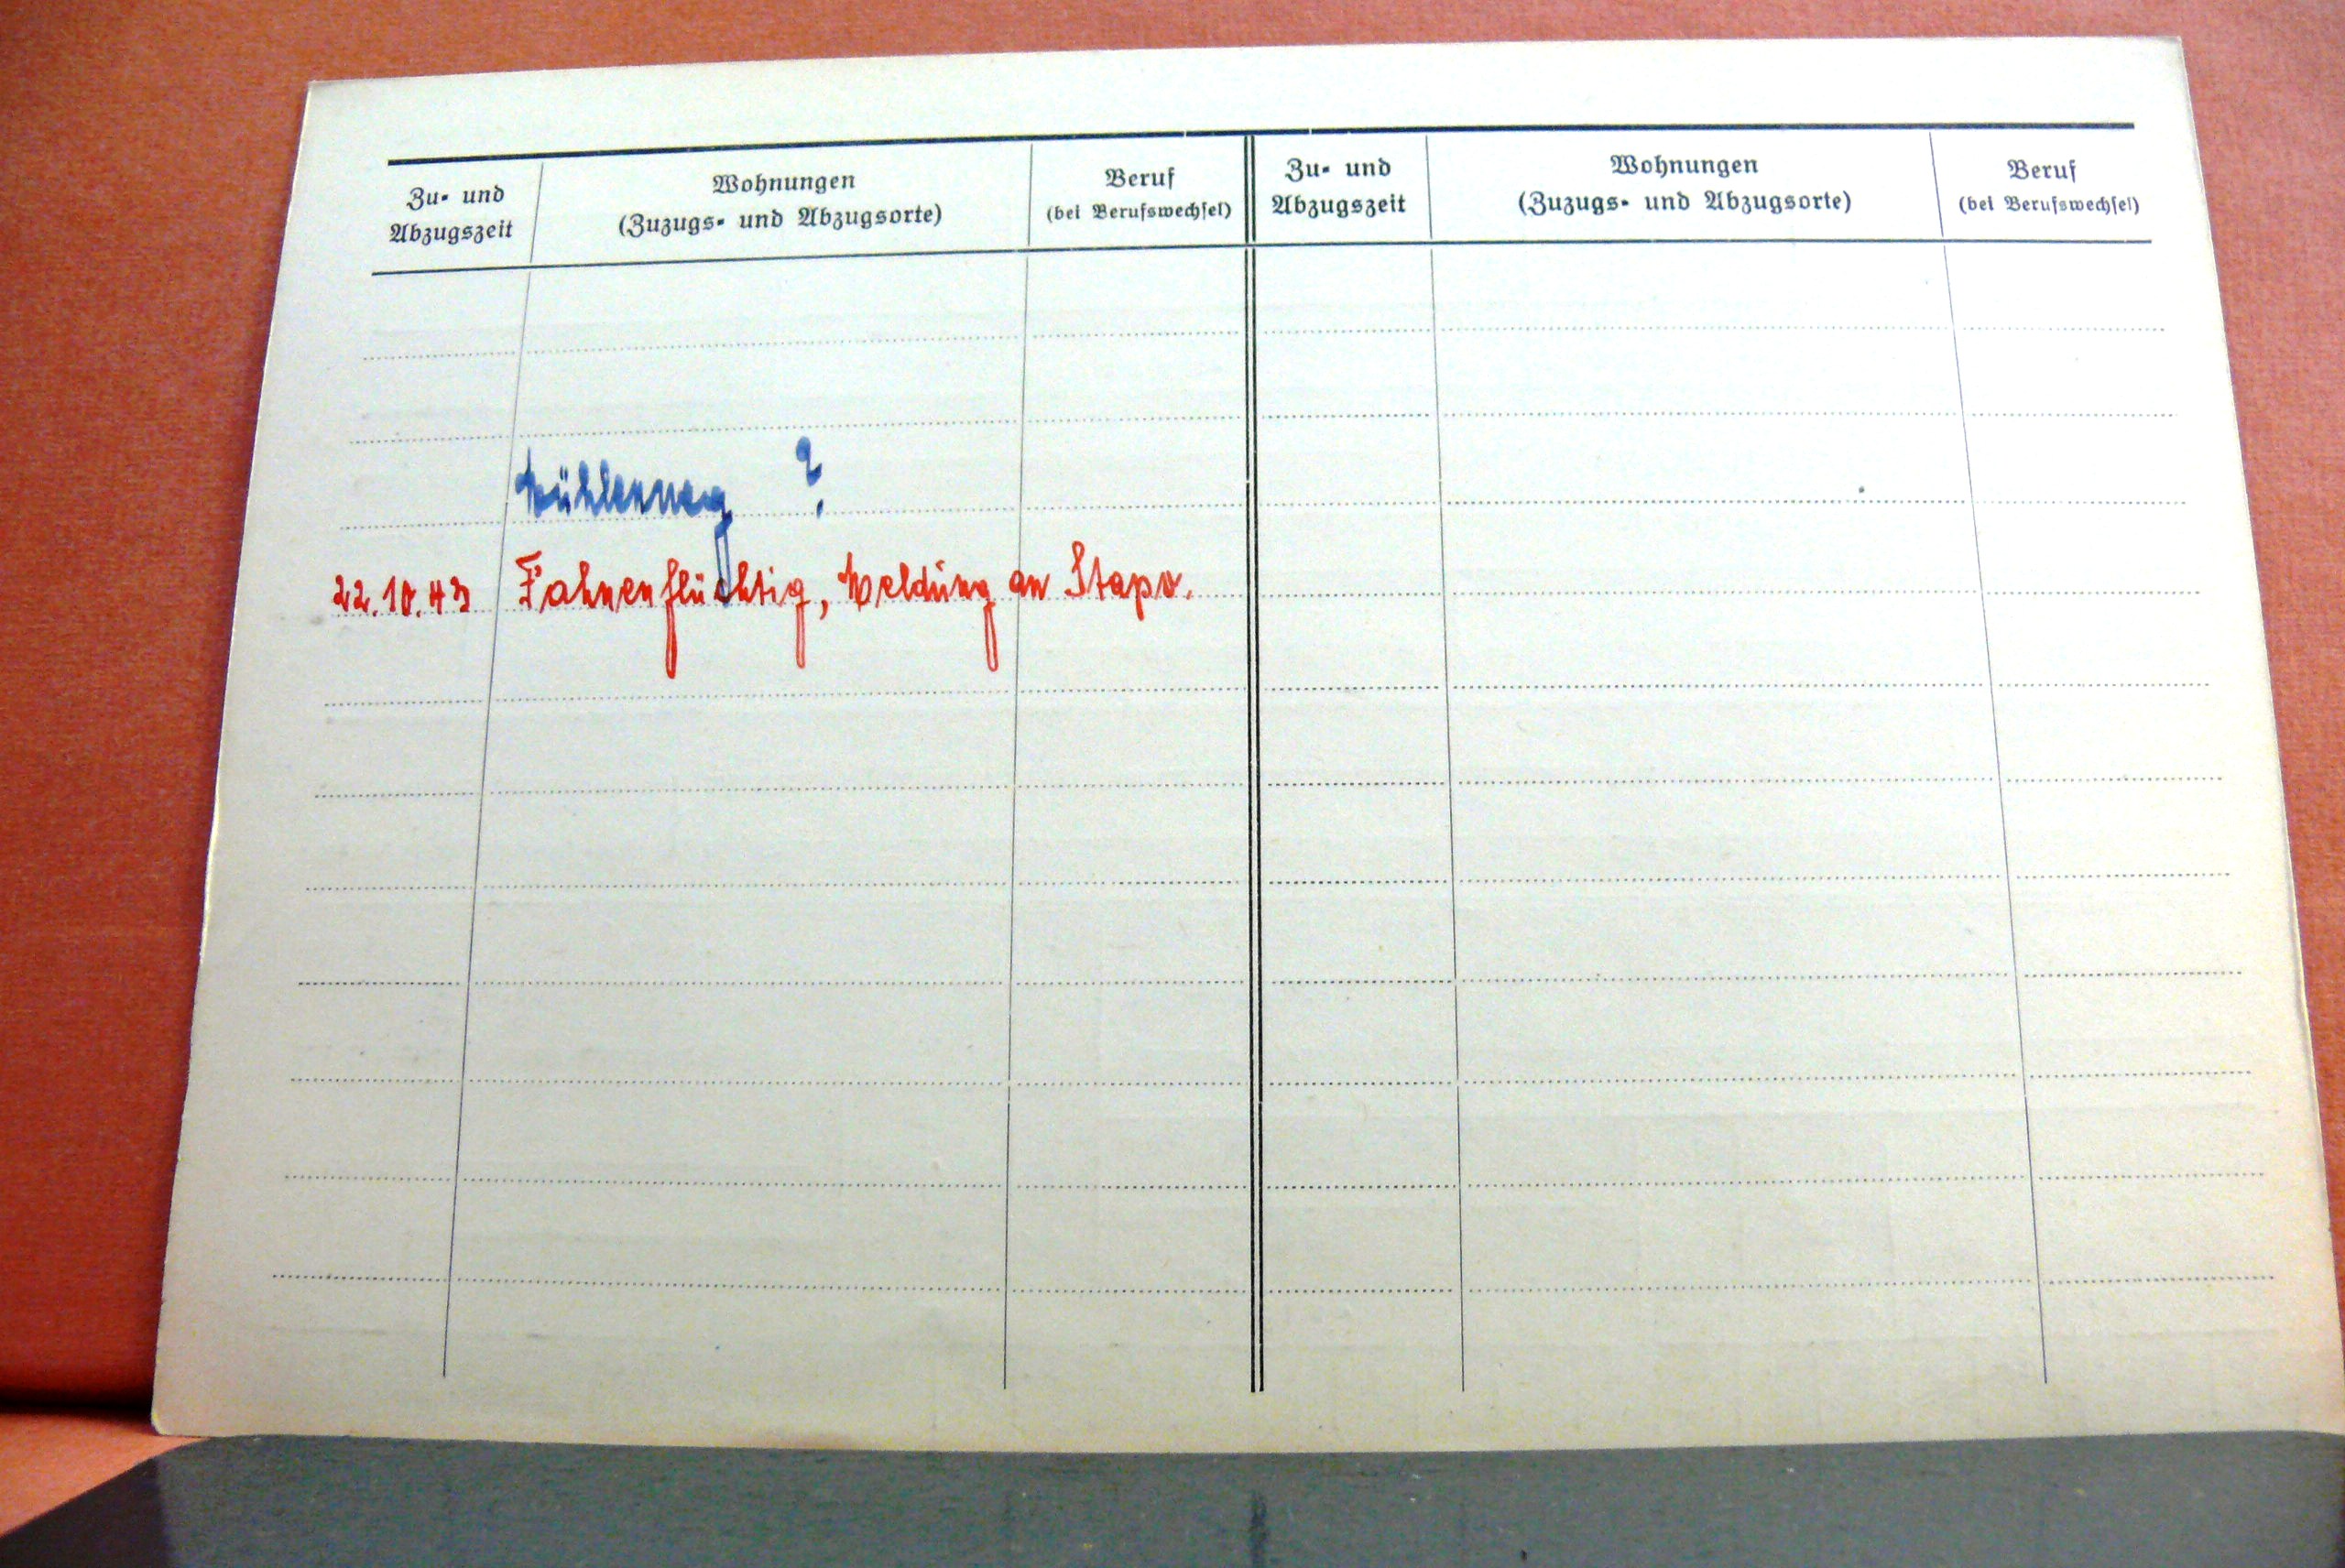 Zu- und Abzugszeit
Wohnungen
(Zuzugs- und Abzugsorte)
Beruf
(bei Berufswechsel)
Zu- und Abzugszeit
Wohnungen
(Zuzugs- und Abzugsorte)
Beruf
(bei Berufswechsel)
Mühlenweg ?
22.10.43 Fahnenflüchtig, Meldung an Stapo.